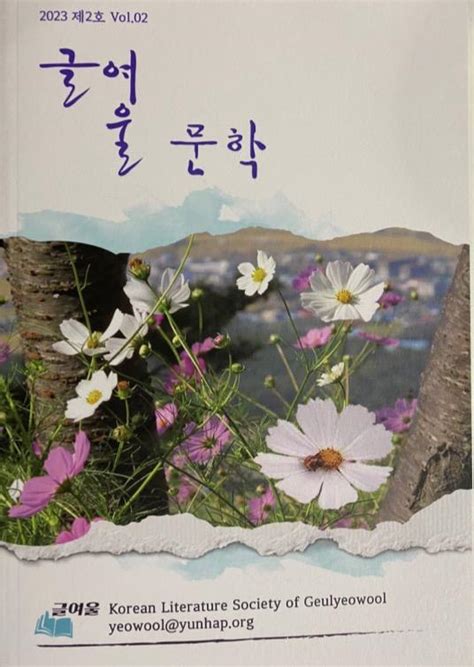 2023 제2호 Vol.02
글여울 문학
글여울 Korean Literature Society of Geulyeowool
yeowool@yunhap.org